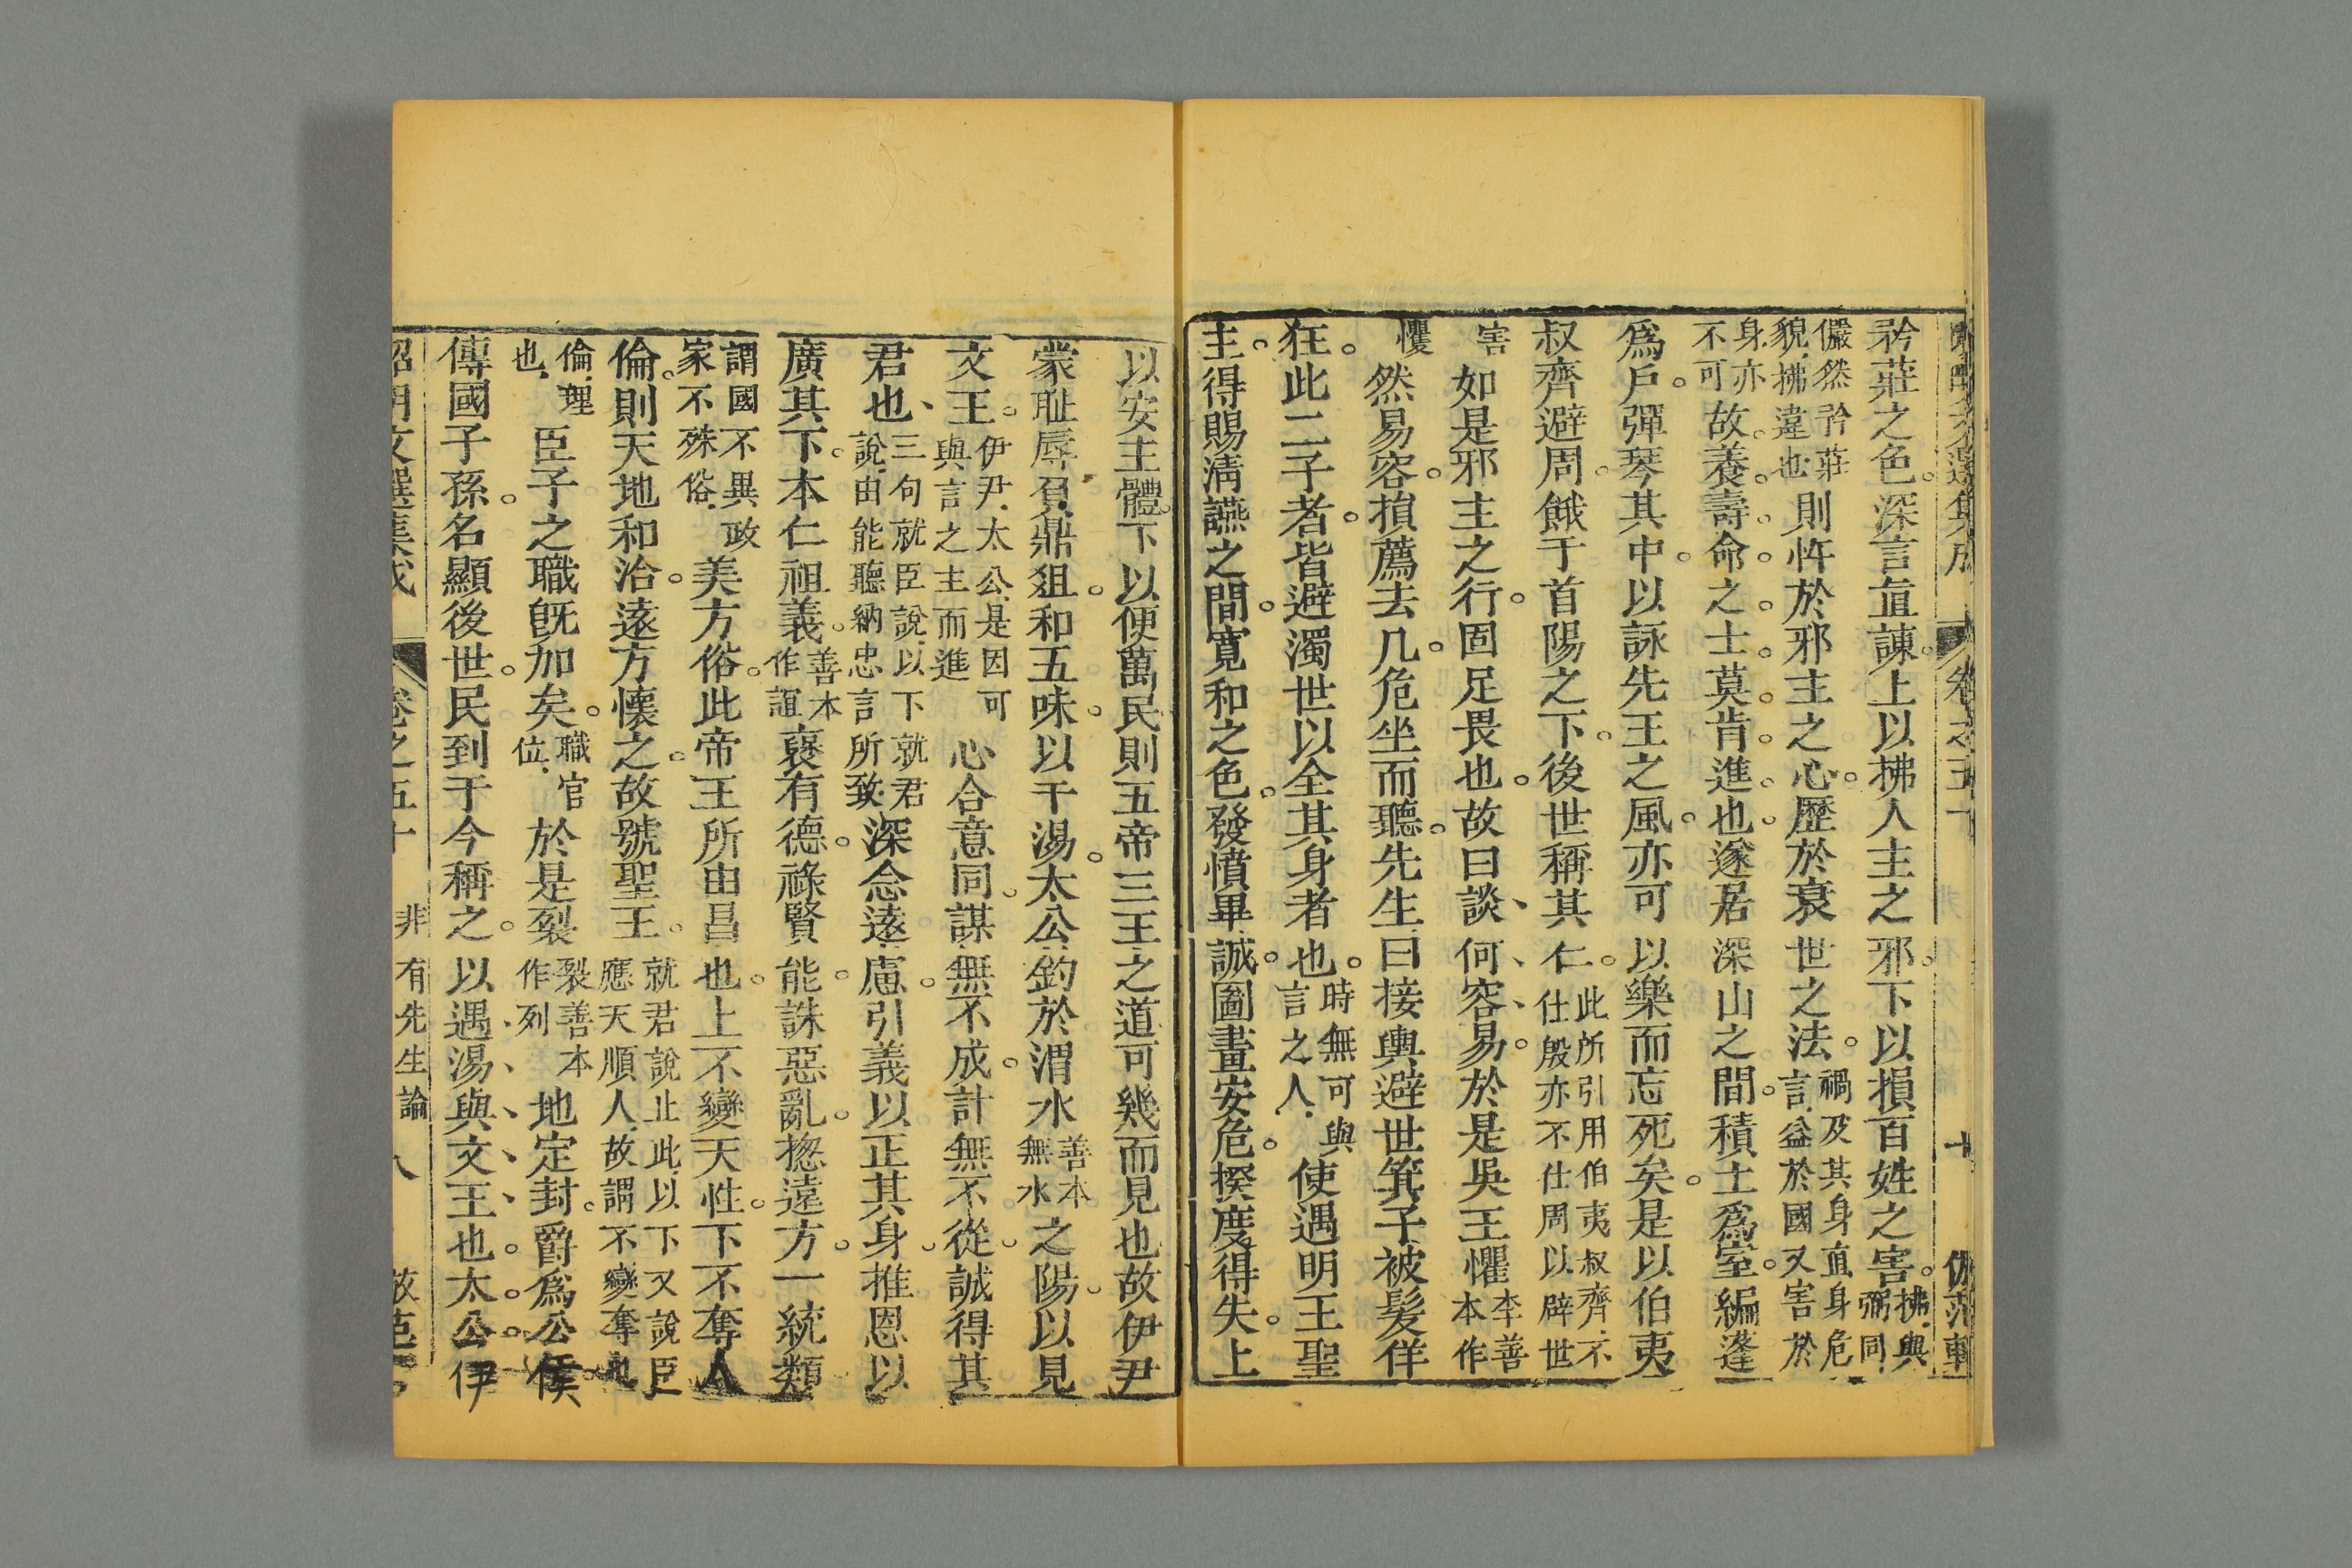 矜莊之色深言直諫上以拂人主之邪下以損百姓之害拂與弼同
儼然矜莊貌拂違也則忤於邪主之心歷於衰世之法禍及其身直身危言益於國又害於
身亦不可故養壽命之士莫肯進也遂居深山之間積土爲室編蓬
爲戶彈琴其中以詠先王之風亦可以樂而忘死矣是以伯夷
叔齊避周餓于首陽之下後世稱其仁此所引用伯夷叔齊不仕殷亦不仕周以辟世
害如是邪主之行固足畏也故曰談何容易於是吳王懼李善本作
戄然易容損薦去几危坐而聽先生曰接輿避世箕子被髮佯
狂此二子者皆避濁世以全其身者也時無可與言之人使遇明王聖
主得賜淸讌之間寬和之色發憤畢誠圖畫安危揆度得失上
以安主體下以便萬民則五帝三王之道可幾而見也故伊尹
蒙耻辱負鼎俎和五味以干湯太公釣於渭水善本無水之陽以見
文王伊尹太公是因可與言之主而進心合意同謀無不成計無不從誠得其
君也三句就臣說以下就君說由能聽納忠言所致深念遠慮引義以正其身推恩以
廣其下本仁祖義善本作誼褒有德祿賢能誅惡亂揔遠方一統類
謂國不異政家不殊俗美方俗此帝王所由昌也上不變天性下不奪人
倫則天地和洽遠方懷之故號聖王就君說止此以下又說臣應天順人故謂不變奪也
倫理也臣子之職旣加矣職官位於是裂裂善本作列地定封爵爲公侯
傳國子孫名顯後世民到于今稱之以遇湯與文王也太公伊
昭明文選集成 卷之五十 非有先生論 八